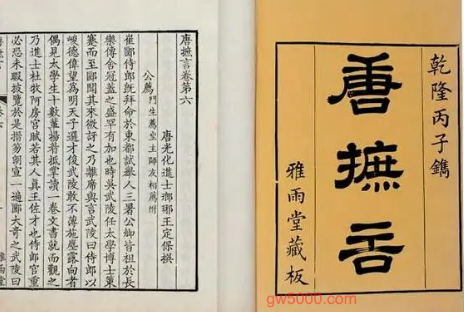 乾隆丙子鐫
唐摭言
雅雨堂藏板
唐摭言卷第六
唐光化進士瑯琊王定保撰
公薦門生薦坐主師友相薦附
崔郾侍郎既拜命於東都試舉人三署公卿皆祖於長
樂傳舍冠蓋之盛罕有加也時吳武陵任太學博士策
蹇而至郾聞其來微訝之乃離席與言武陵曰侍郎以
峻德偉望為明天子選才俊武陵敢不薄施塵露向者
偶見太學生十數輩揚眉抵掌讀一卷文書就而觀之
乃進士杜牧阿房宮賦若其人真王佐才也侍郎官重
必恐未暇披覽於是搢笏朗宣一遍郾大奇之武陵曰
雅雨堂
gw5000.com